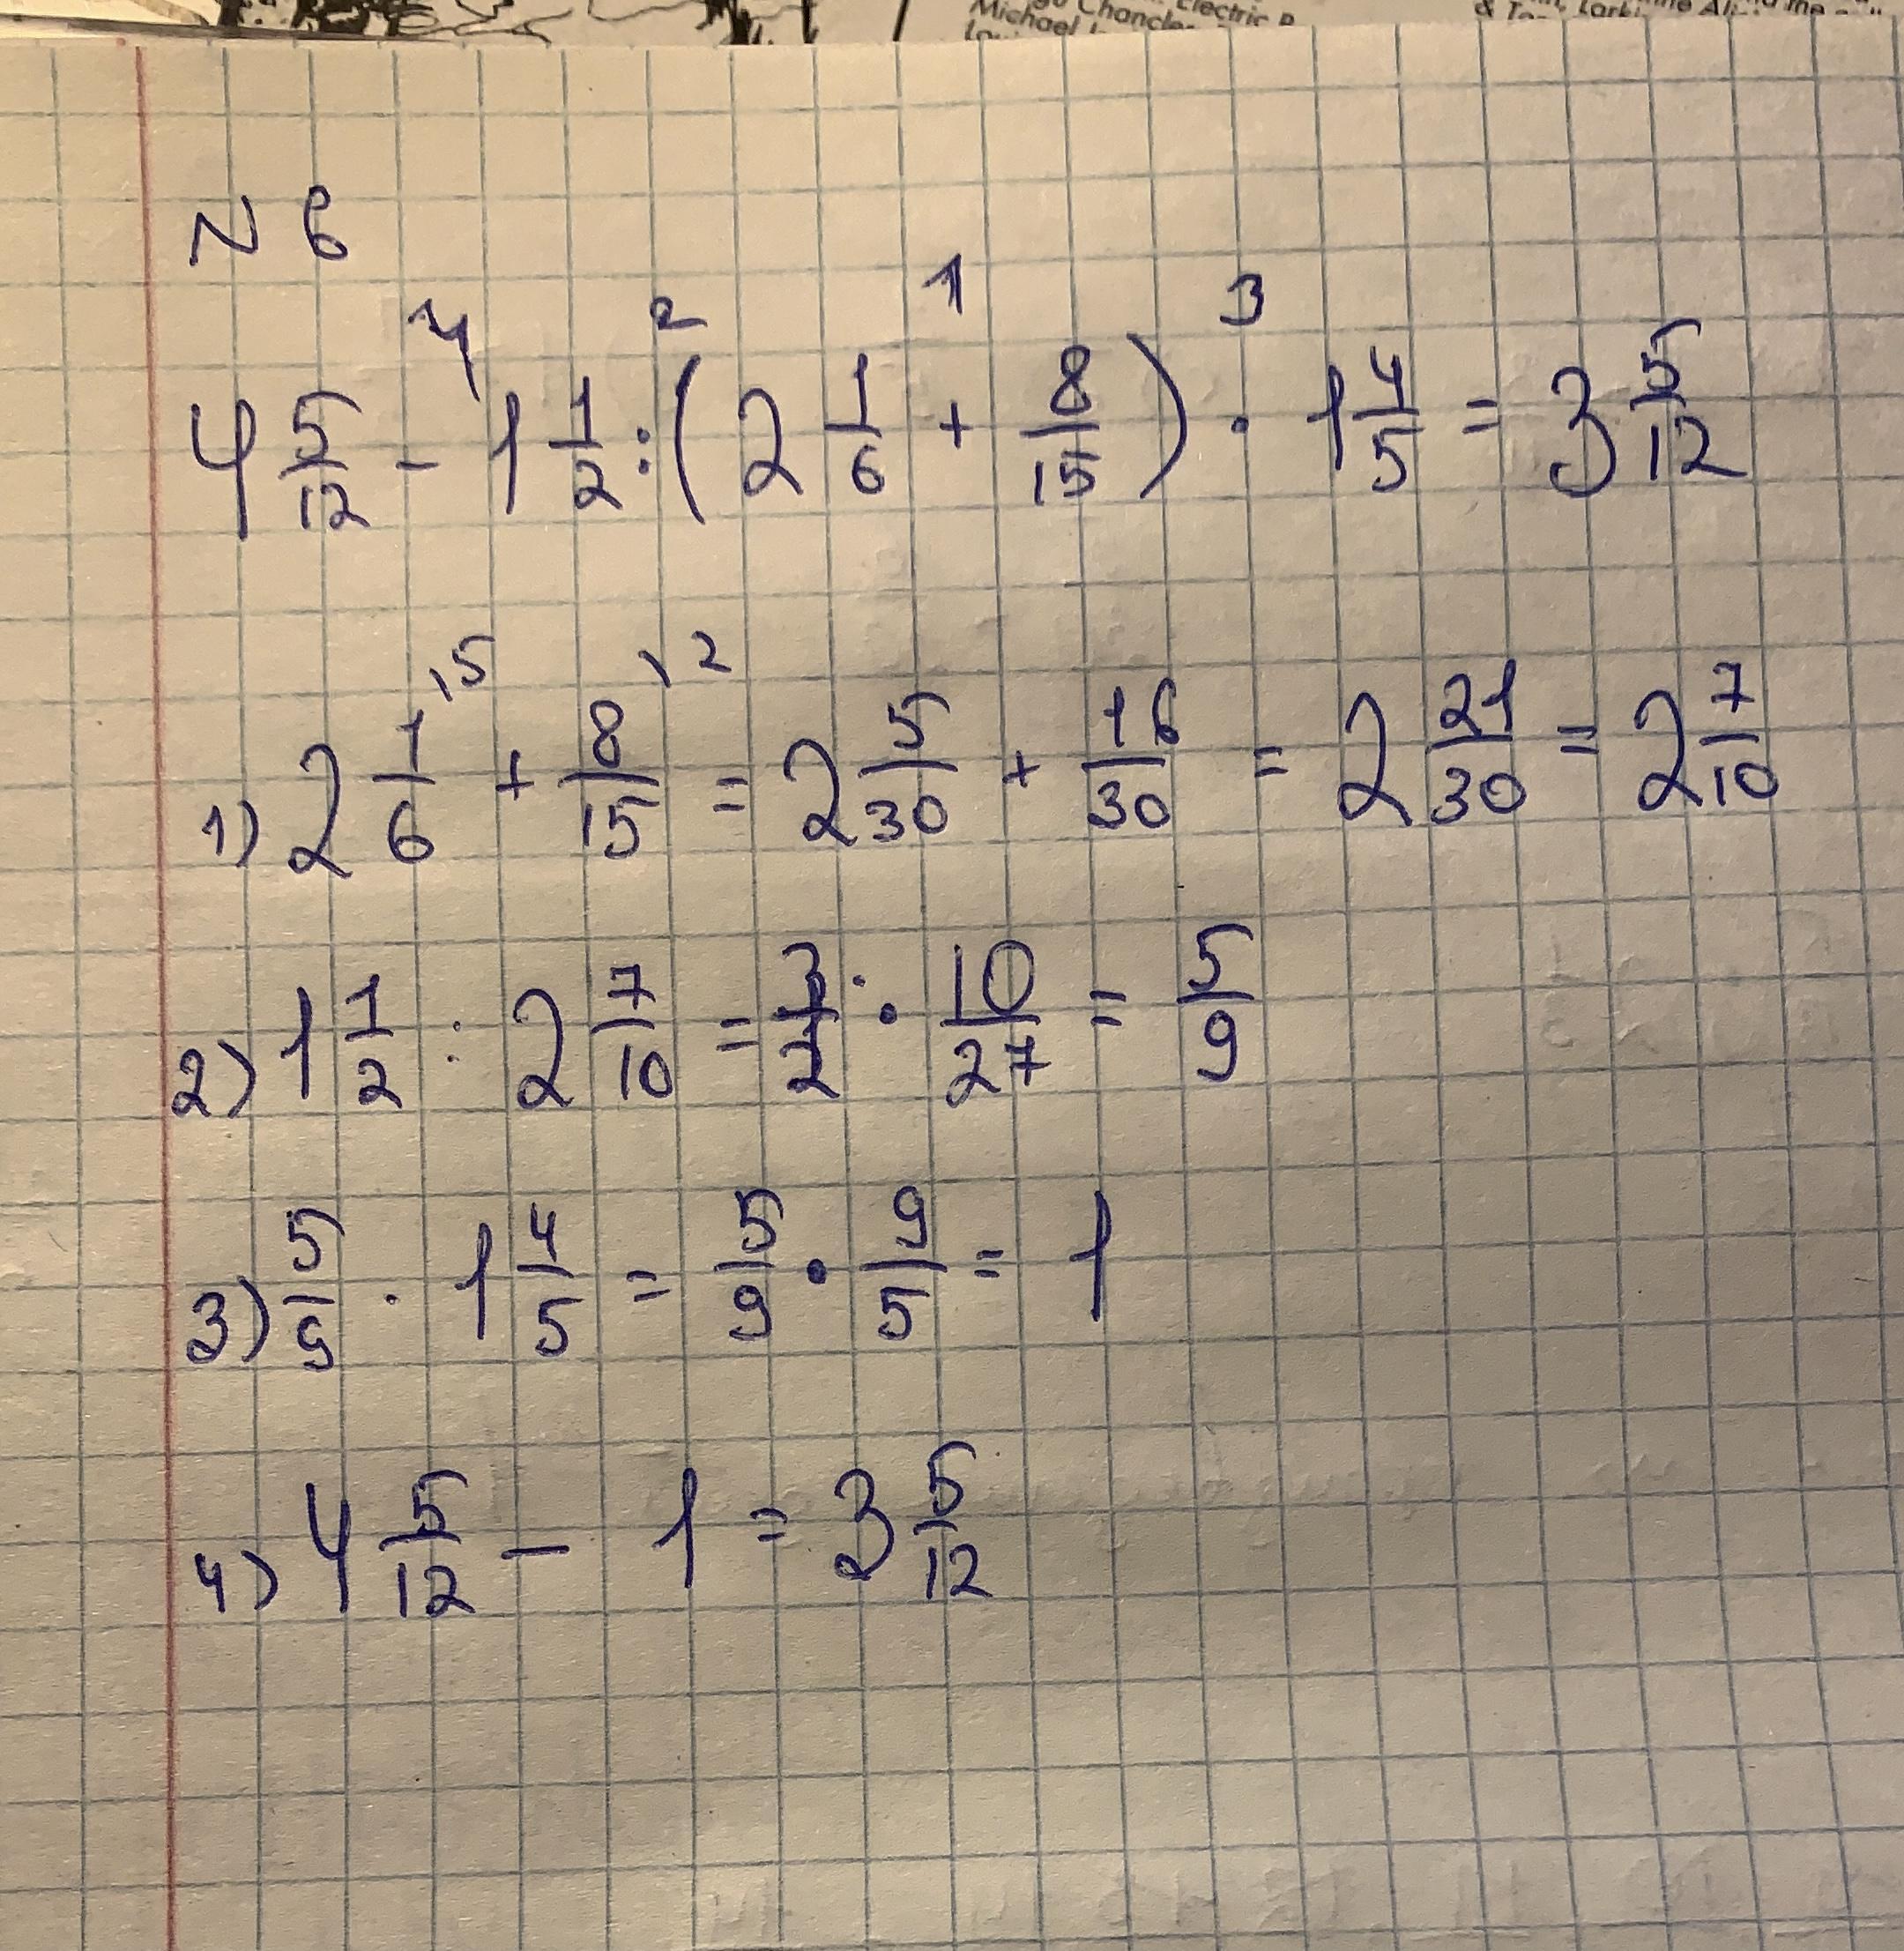 Michael
Chancler
Electric
& To
Larki
N 6
4 5/12 - 1 1/2 : (2 1/6 + 8/15) · 1 4/5 = 3 5/12
4 2 1 3
1) 2 1/6 \5 + 8/15 \2 = 2 5/30 + 16/30 = 2 21/30 = 2 7/10
2) 1 1/2 : 2 7/10 = 3/2 · 10/27 = 5/9
3) 5/9 · 1 4/5 = 5/9 · 9/5 = 1
4) 4 5/12 - 1 = 3 5/12